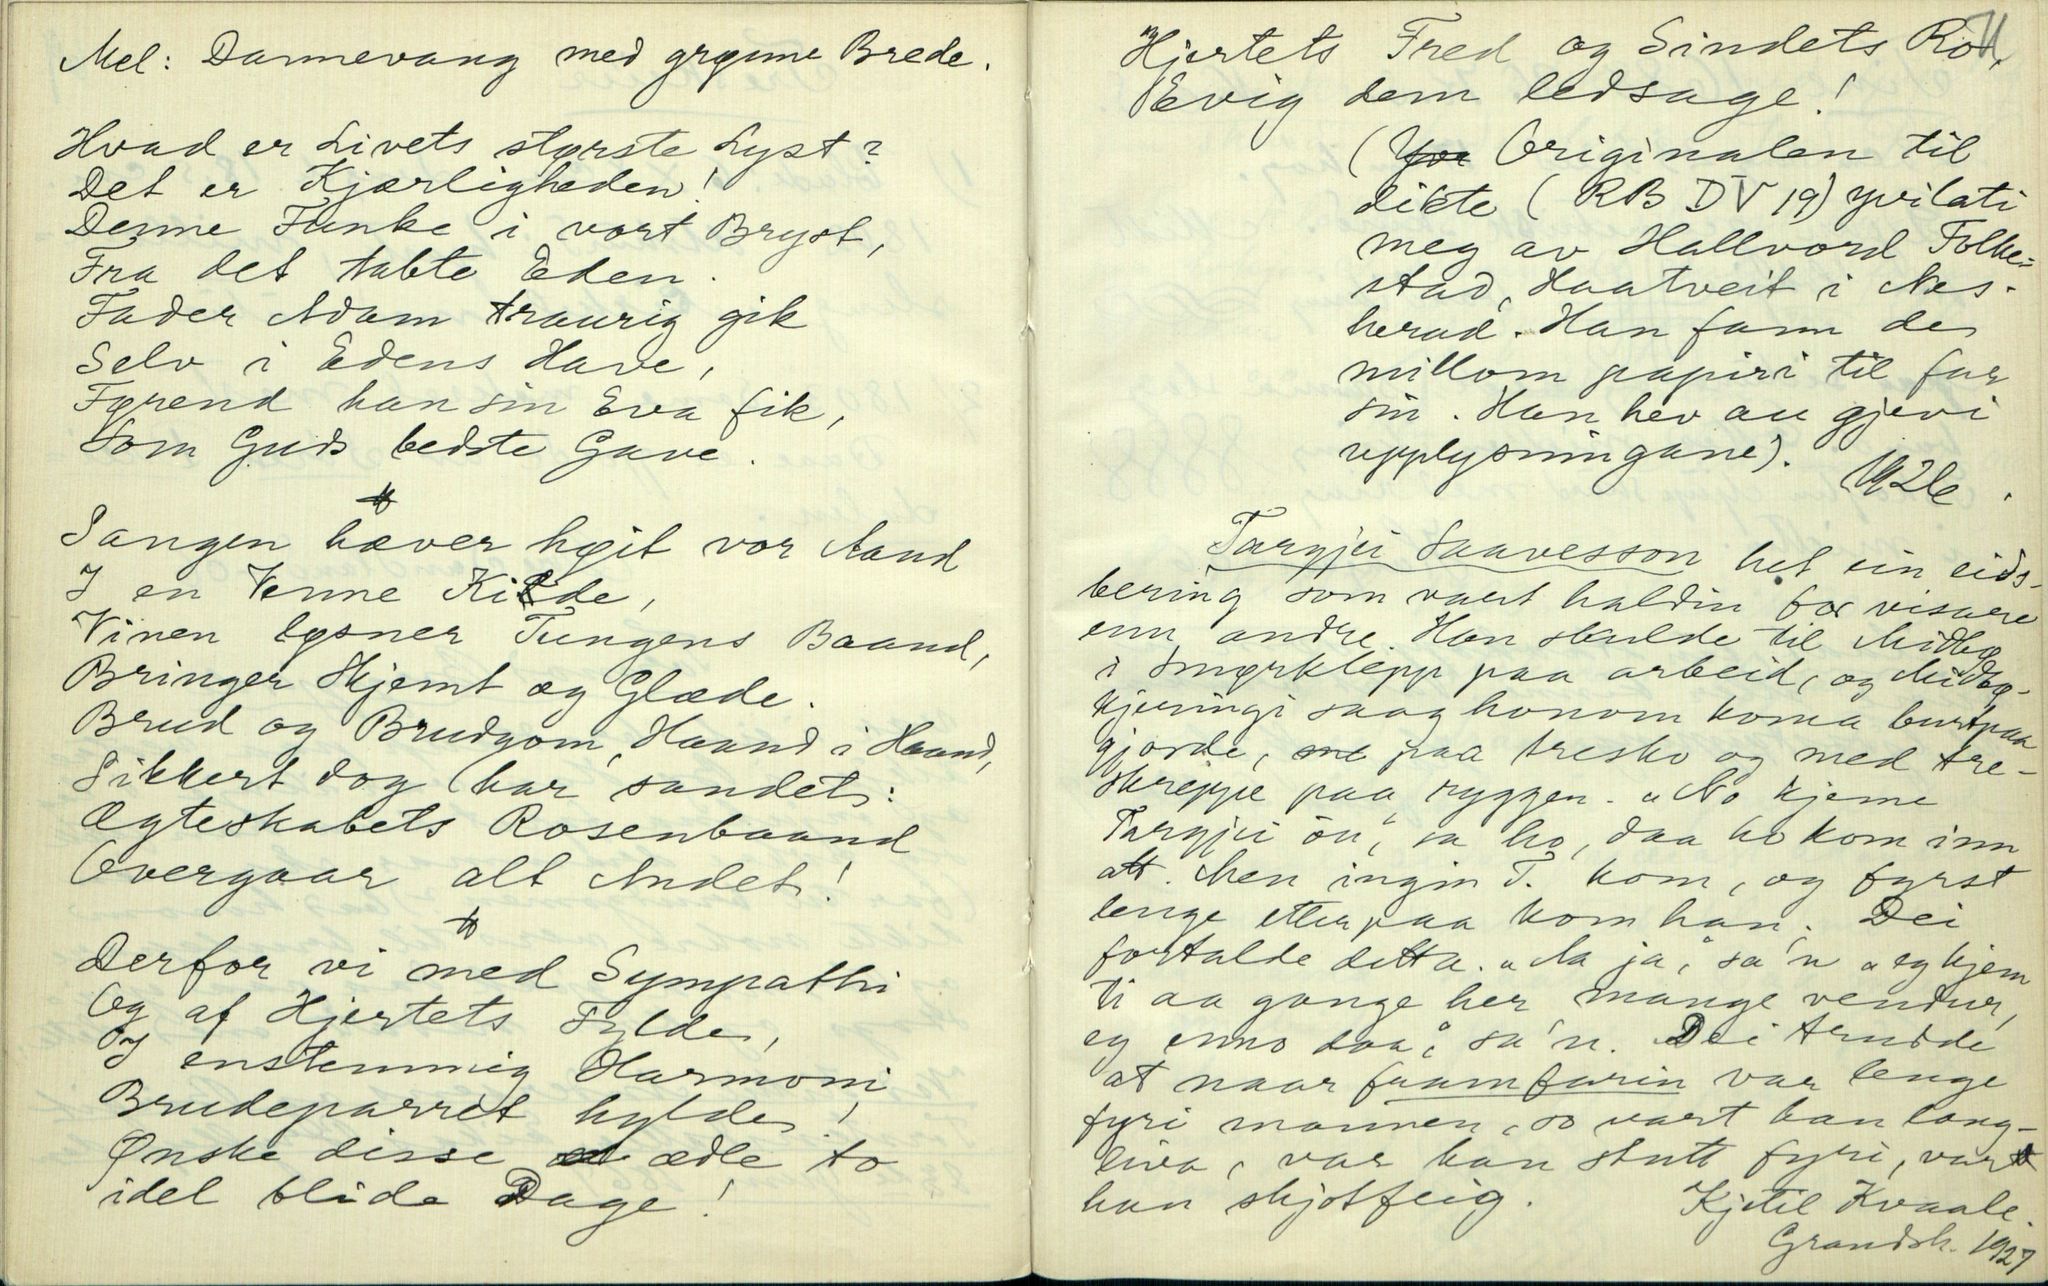 Mel: Dannevang med grønne Brede.
Hvad er Livets største Lyst?
Det er Kjærligheden!
Denne Funke i vort Bryst,
Fra det tabte Eden.
Fader Adam traurig gik
Selv i Edens Have,
Førend han sin Eva fik,
Som Guds bedste Gave.
Sangen hæver høit vor Aand
I en Venne Kilde,
Vinen løsner Tungens Baand,
Bringer Skjemt og Glæde.
Brud og Brudgom, Haand i Haand,
Sikkert dog har sandet:
Ægteskabets Rosenbaand
Overgaar alt Andet!
Derfor vi med Sympathi
Og af Hjertets Fylde,
I enstemmig Harmoni
Brudeparret hylde!
Ønske disse ædle to
idel blide Dage!
Hjertets Fred og Sindets Ro,
Evig dem ledsage!
(Originalen til
dikte (RB DV 19) yvilati
meg av Hallvord Folke=
stad, Haatveit i Nes-
herad. Han fann de
millom papiri til far
sin. Han hev au gjevi
upplysningane).
1926.
Targjei Saavesson het ein eids-
bering som vart haldin for visare
enn andre. Han skulde til Midbø
i Smørklepp paa arbeid, og Midbø-
kjeringi saag honom koma burtpaa
gjorde, paa tresko og med tre-
skreppe paa ryggen. "No kjeme
Targjei ou", sa ho, daa ho kom inn
att. Men ingin T. kom, og fyrst
lenge etterpaa kom han. Dei
fortalde detta. "Aa ja", sa'n "eg kjem
ti aa gange her mange vendur,
eg enno daa", sa'n. Dei trudde
at naar framfarin var lenge
fyri mannen, so vart han lang-
liva, var han stutt fyri, vart
han skjotfeig. Kjetil Kvaale.
Grandsh. 1927